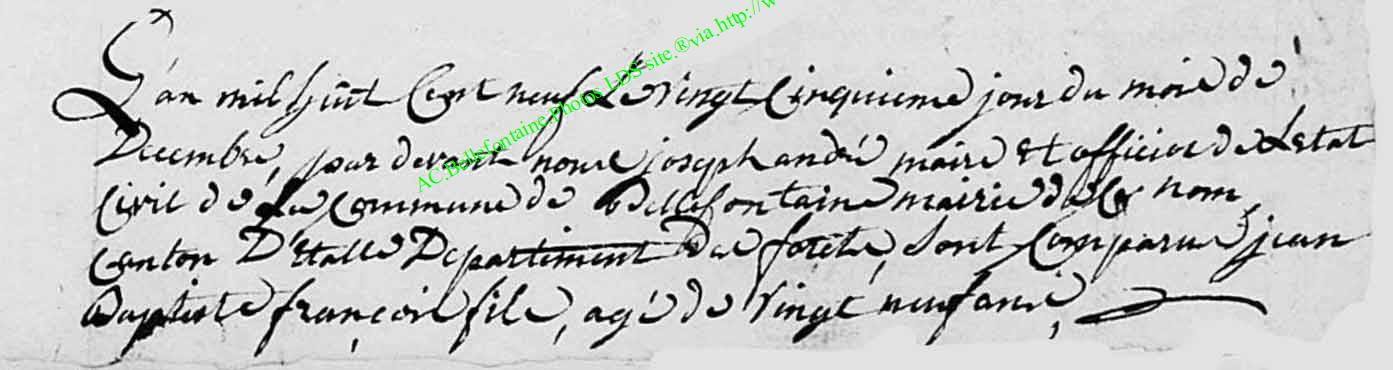 L'an mil huit Cent neuf Le vingt Cinquieme jour du mois de
Decembre, par devant nous joseph andré maire et officier de L'Etat
Civil de La Commune de Bellefontaine mairie de Ce nom,
Canton D'Etalle Departement Des forêts, Sont Comparus jean
Baptiste françois file, agé de vingt neuf ans,
AC.Bellefontaine.Photos LDS-site.®via.http://w